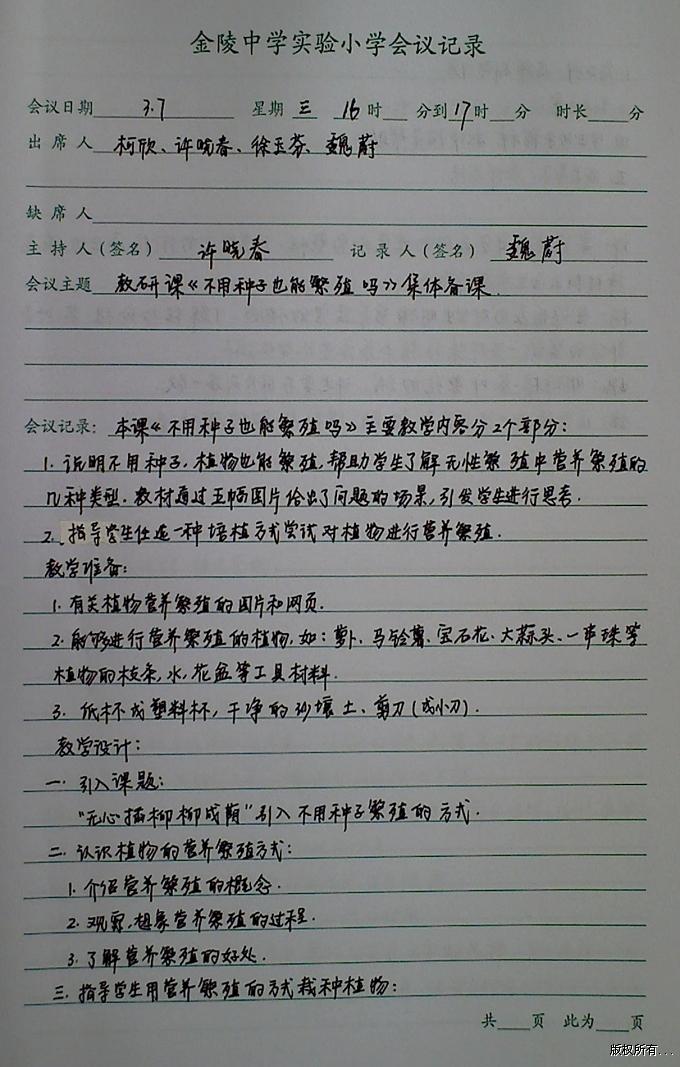 金陵中学实验小学会议记录
会议日期 3.7 星期 三 16时 分到17时 分 时长 分
出席人 柯欣、许晓春、徐玉芬、魏蔚
缺席人
主持人(签名) 许晓春 记录人(签名) 魏蔚
会议主题 教研课《不用种子也能繁殖吗》集体备课.
会议记录: 本课《不用种子也能繁殖吗》主要教学内容分2个部分:
1. 说明不用种子,植物也能繁殖,帮助学生了解无性繁殖中营养繁殖的
几种类型. 教材通过五幅图片给出了问题的场景,引发学生进行思考.
2. 指导学生任选一种培植方式尝试对植物进行营养繁殖.
教学准备:
1. 有关植物营养繁殖的图片和网页.
2. 能够进行营养繁殖的植物,如:萝卜、马铃薯、宝石花、大蒜头、一串珠等
植物的枝条,水,花盆等工具材料.
3. 纸杯或塑料杯,干净的砂壤土、剪刀(或小刀).
教学设计:
一. 引入课题:
“无心插柳柳成荫”引入不用种子繁殖的方式.
二. 认识植物的营养繁殖方式:
1. 介绍营养繁殖的概念.
2. 观察,想象营养繁殖的过程.
3. 了解营养繁殖的好处.
三. 指导学生用营养繁殖的方式栽种植物:
共 页 此为 页
版权所有...